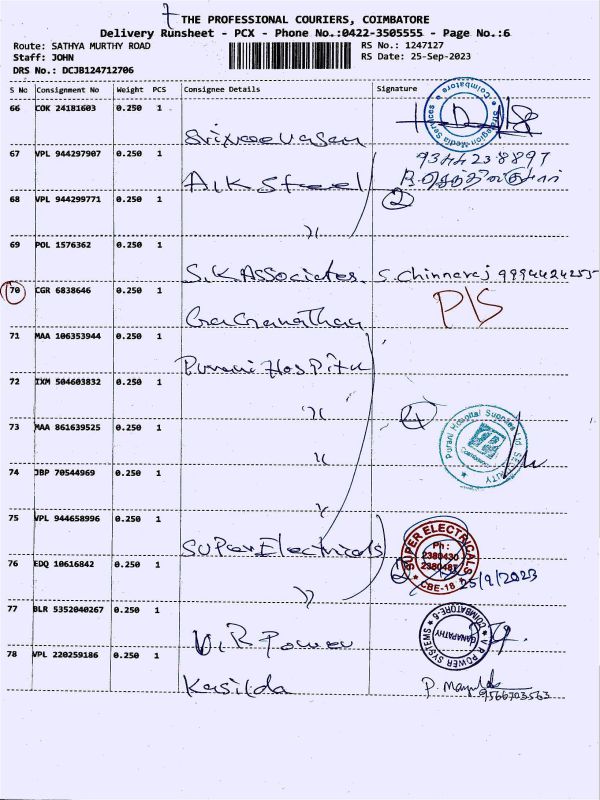 7
THE PROFESSIONAL COURIERS, COIMBATORE
Delivery Runsheet - PCX - Phone No.:0422-3505555 - Page No.:6
Route: SATHYA MURTHY ROAD
RS No.: 1247127
Staff: JOHN
RS Date: 25-Sep-2023
DRS No.: DCJB124712706
S No Consignment No Weight PCS Consignee Details Signature
66 COK 24181603 0.250 1
Srineevasan
Strategion-Media Services Coimbatore
67 VPL 944297907 0.250 1
9344238897
A.K Steel
2
68 VPL 944299771 0.250 1
69 POL 1576362 0.250 1
S.K Associates. S. Chinnaraj 9994424255
70 CGR 6838646 0.250 1
P/S
71 MAA 106353944 0.250 1
Purani Hospital
72 IXM 504603832 0.250 1
4
73 MAA 861639525 0.250 1
Purani Hospital Supplies SECURITY
74 JBP 70544969 0.250 1
75 VPL 944658996 0.250 1
Super Electricals
SUPER ELECTRICALS
Ph :
2380430
2380487
CBE-18
2
76 EDQ 10616842 0.250 1
25/9/2023
77 BLR 5352040267 0.250 1
V.R Power
V R POWER SYSTEMS COIMBATORE-6
GANAPATHY
78 VPL 220259186 0.250 1
Kasilda
9566703563